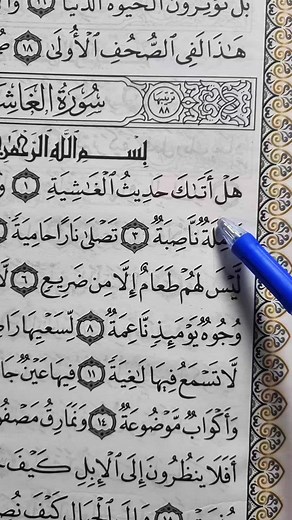 بَلْ تُؤْثِرُونَ ٱلْحَيَوٰةَ ٱلدُّنْيَا ١٦
هَٰذَا لَفِى ٱلصُّحُفِ ٱلْأُولَىٰ ١٨ صُ
سُورَةُ الغَاشِ ترتيبها ٨٨
بِسْمِ ٱللَّهِ ٱلرَّحْمَٰنِ
هَلْ أَتَىٰكَ حَدِيثُ ٱلْغَٰشِيَةِ ١ و
مِلَةٌ نَّاصِبَةٌ ٣ تَصْلَىٰ نَارًا حَامِيَةً
لَّيْسَ لَهُمْ طَعَامٌ إِلَّا مِن ضَرِيعٍ ٦ لَّا
وُجُوهٌ يَوْمَئِذٍ نَّاعِمَةٌ ٨ لِّسَعْيِهَا رَاضِ
لَّا تَسْمَعُ فِيهَا لَٰغِيَةً ١١ فِيهَا عَيْنٌ جَا
وَأَكْوَابٌ مَّوْضُوعَةٌ ١٤ وَنَمَارِقُ مَصْفُو
أَفَلَا يَنظُرُونَ إِلَى ٱلْإِبِلِ كَيْفَ
وَإِلَى ٱلْجِبَالِ كَيْفَ نُصِ